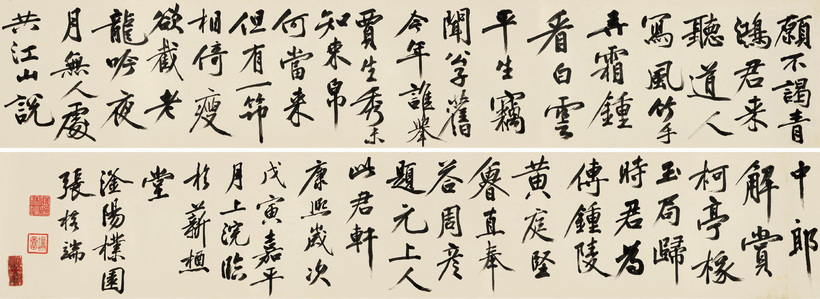 願不謁青
鴻君来
聽道人
寫風竹手
弄霜鍾
看白雲
平生竊
聞公子舊
今年誰舉
賈生秀未
知束帛
何當来
但有一笻
相倚瘦
欲截老
龍吟夜
月無人處
共江山說
中郎
解賞
柯亭椽
玉局歸
時君為
傳鍾陵
黄庭堅
魯直奉
答周彦
題元上人
此君軒
康熙歲次
戊寅嘉平
月上浣臨
於薪槱
堂
滏陽樸園
張榕端